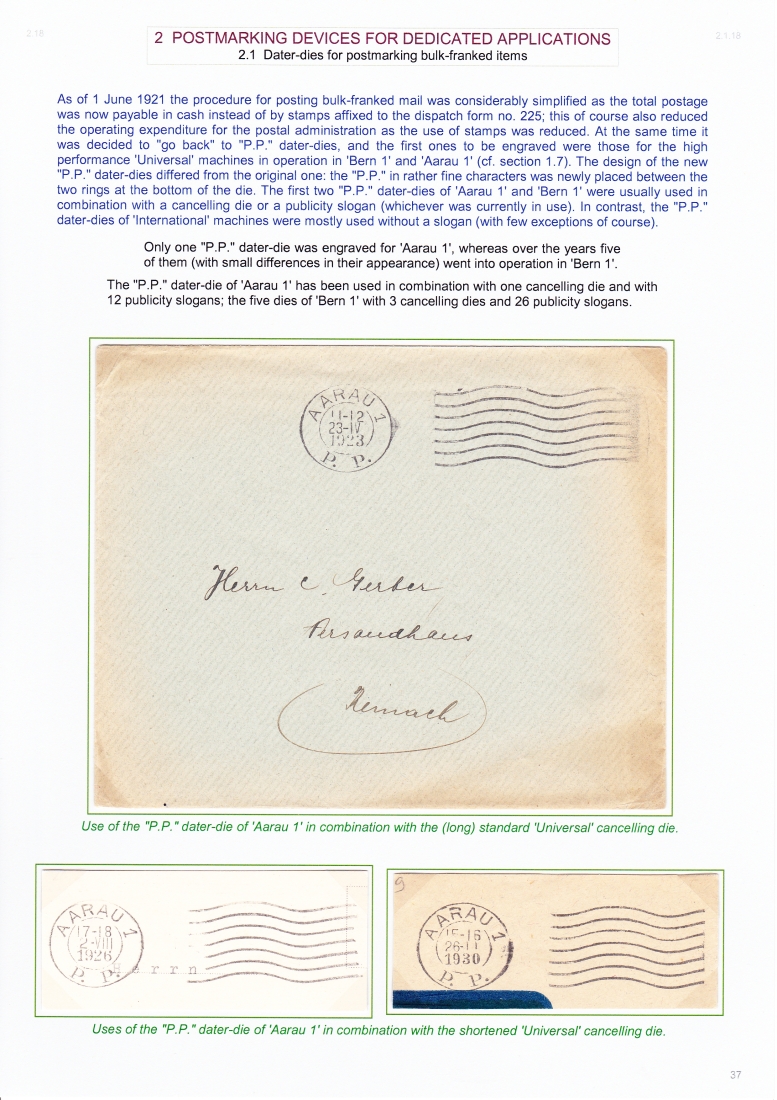 2.18
2.1.18
2 POSTMARKING DEVICES FOR DEDICATED APPLICATIONS
2.1 Dater-dies for postmarking bulk-franked items
As of 1 June 1921 the procedure for posting bulk-franked mail was considerably simplified as the total postage
was now payable in cash instead of by stamps affixed to the dispatch form no. 225; this of course also reduced
the operating expenditure for the postal administration as the use of stamps was reduced. At the same time it
was decided to "go back" to "P.P." dater-dies, and the first ones to be engraved were those for the high
performance 'Universal' machines in operation in 'Bern 1' and 'Aarau 1' (cf. section 1.7). The design of the new
"P.P." dater-dies differed from the original one: the "P.P." in rather fine characters was newly placed between the
two rings at the bottom of the die. The first two "P.P." dater-dies of 'Aarau 1' and 'Bern 1' were usually used in
combination with a cancelling die or a publicity slogan (whichever was currently in use). In contrast, the "P.P."
dater-dies of 'International' machines were mostly used without a slogan (with few exceptions of course).
Only one "P.P." dater-die was engraved for 'Aarau 1', whereas over the years five
of them (with small differences in their appearance) went into operation in 'Bern 1'.
The "P.P." dater-die of 'Aarau 1' has been used in combination with one cancelling die and with
12 publicity slogans; the five dies of 'Bern 1' with 3 cancelling dies and 26 publicity slogans.
AARAU 1
11-12
23-IV
1923
P. P.
Herrn C. Gerber
Versandhaus
Reinach
Use of the "P.P." dater-die of 'Aarau 1' in combination with the (long) standard 'Universal' cancelling die.
AARAU 1
17-18
2-VIII
1926
P. P.
Herrn
9
AARAU 1
15-16
1930
P. P.
Uses of the "P.P." dater-die of 'Aarau 1' in combination with the shortened 'Universal' cancelling die.
37